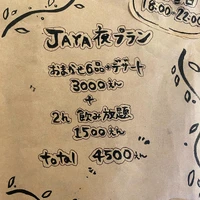 18:00-22:00
JAYA夜プラン
おまかせ6品+デザート
3000えん
+
2h 飲み放題
1500えん
total 4500えん